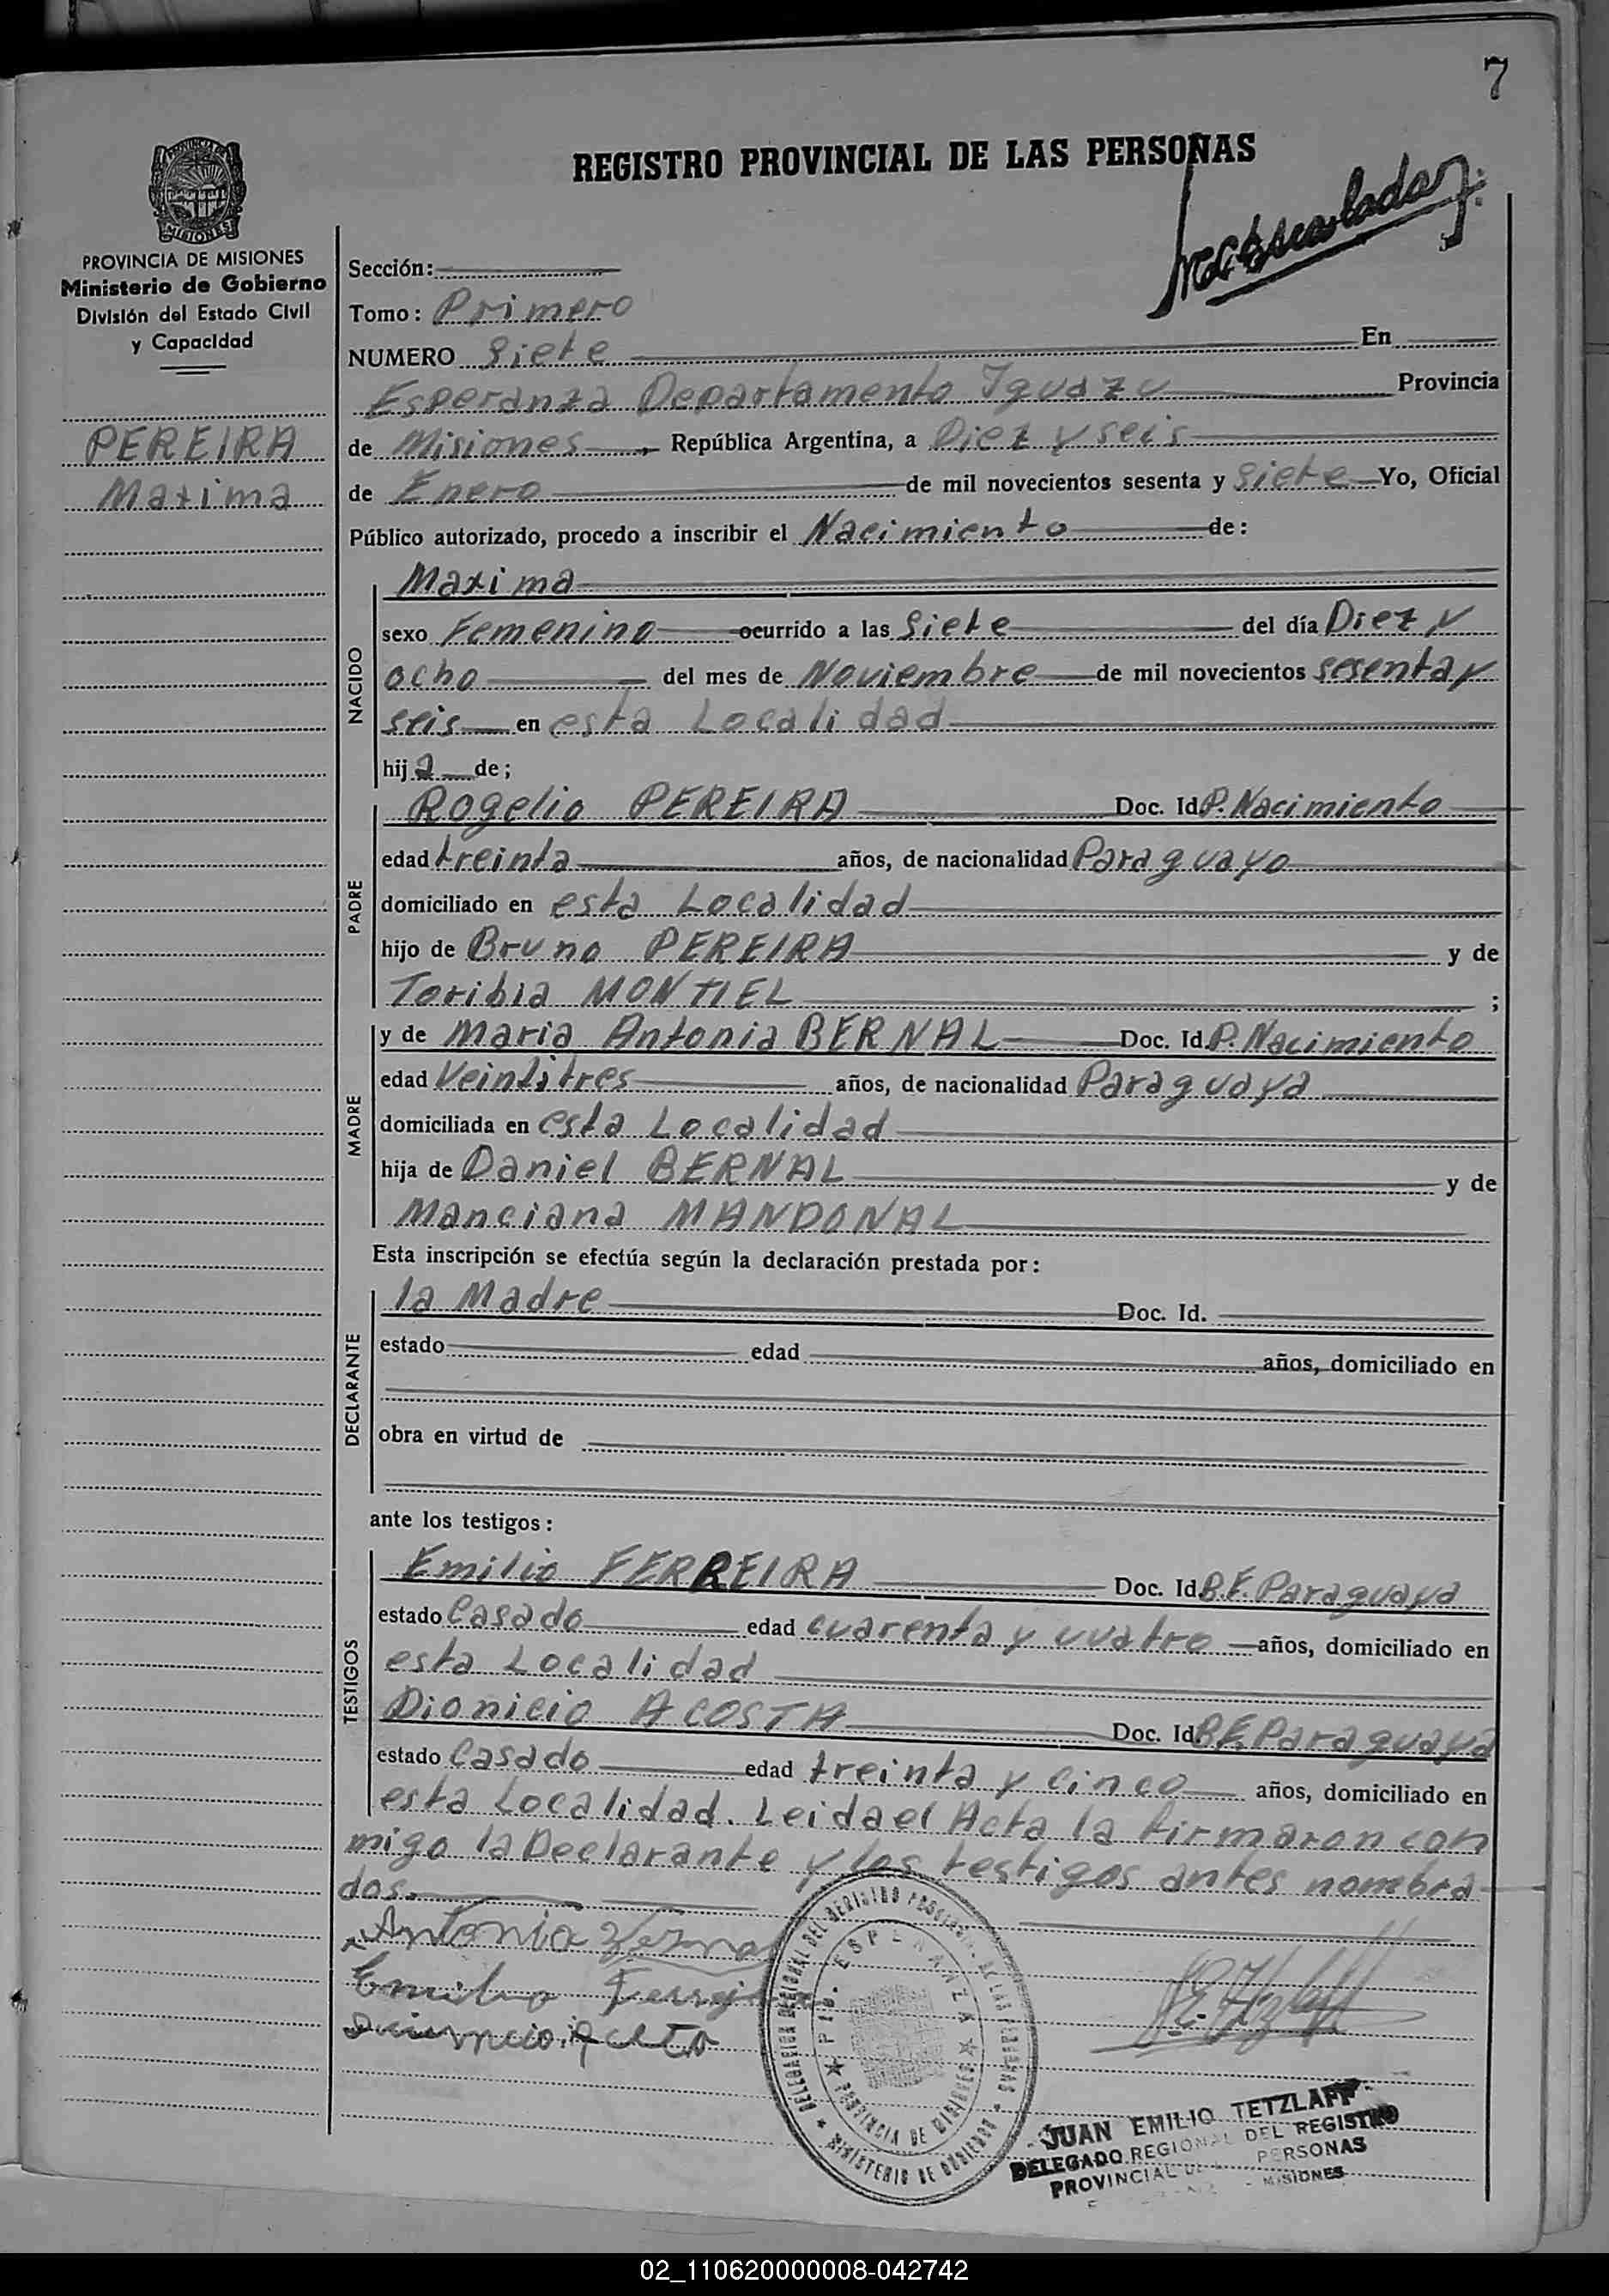 7
REGISTRO PROVINCIAL DE LAS PERSONAS
PROVINCIA DE MISIONES
Ministerio de Gobierno
División del Estado Civil
y Capacidad
PEREIRA
Maxima
Sección:
Tomo: Primero
NUMERO Siete En
Esperanza Departamento Iguazu Provincia
de Misiones, República Argentina, a Diez y seis
de Enero de mil novecientos sesenta y Siete Yo, Oficial
Público autorizado, procedo a inscribir el Nacimiento de:
NACIDO
Maxima
sexo Femenino ocurrido a las Siete del día Diez y
ocho del mes de Noviembre de mil novecientos sesenta y
seis en esta Localidad
hija de;
PADRE
Rogelio PEREIRA Doc. Id. P. Nacimiento
edad treinta años, de nacionalidad Paraguayo
domiciliado en esta Localidad
hijo de Bruno PEREIRA y de
Toribia MONTIEL ;
MADRE
y de Maria Antonia BERNAL Doc. Id. P. Nacimiento
edad Veintitres años, de nacionalidad Paraguaya
domiciliada en esta Localidad
hija de Daniel BERNAL y de
Manciana MANDONAL
Esta inscripción se efectúa según la declaración prestada por:
DECLARANTE
la Madre Doc. Id.
estado edad años, domiciliado en
obra en virtud de
ante los testigos:
TESTIGOS
Emilio FERREIRA Doc. Id. B.F. Paraguaya
estado Casado edad cuarenta y cuatro años, domiciliado en
esta Localidad
Dionicio ACOSTA Doc. Id. B.F. Paraguaya
estado Casado edad treinta y cinco años, domiciliado en
esta Localidad. Leida el Acta la firmaron con
migo la Declarante y los testigos antes nombra
dos.
Antonia
Emilio Ferreira
DELEGACION REGIONAL DEL REGISTRO PROVINCIAL DE LAS PERSONAS
MINISTERIO DE GOBIERNO
PROVINCIA DE MISIONES
JUAN EMILIO TETZLAFF
DELEGADO REGIONAL DEL REGISTRO
PROVINCIAL DE PERSONAS
MISIONES
02_110620000008-042742